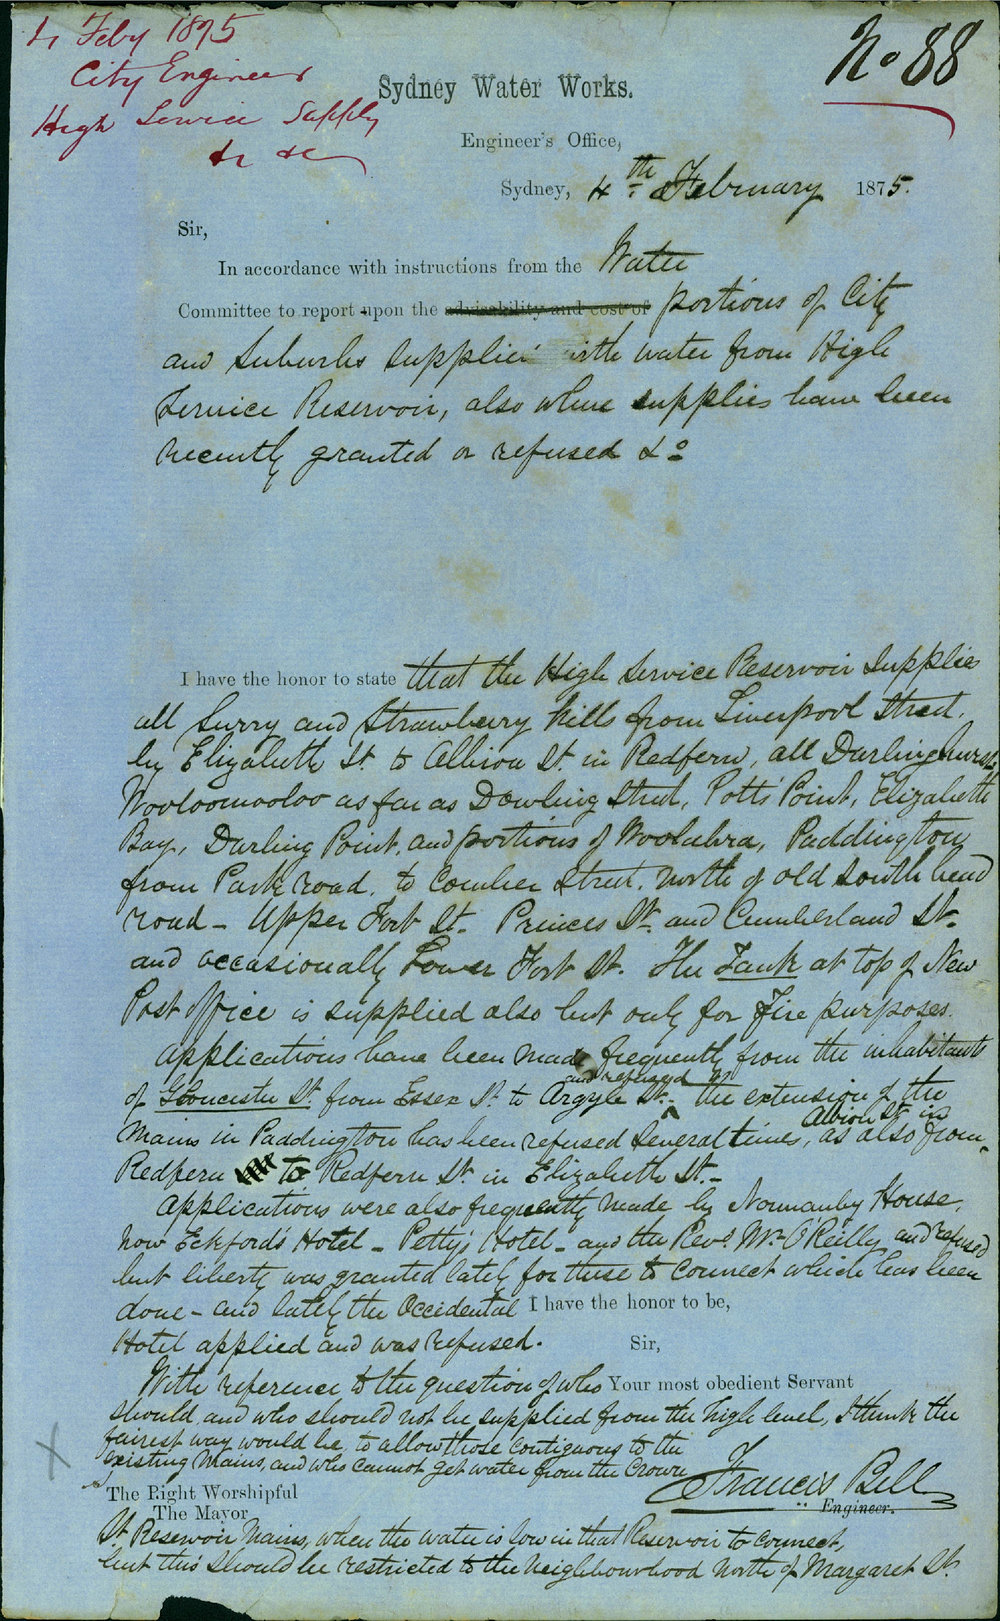 4 Feby 1875
City Engineer
High Service Supply
&c &c
No 88
Sydney Water Works.
Engineer's Office,
Sydney, 4th February 1875.
Sir,
In accordance with instructions from the Water
Committee to report upon the advisability and cost of portions of City
and Suburbs supplied with water from High
Service Reservoir, also where supplies have been
recently granted or refused &c
I have the honor to state that the High Service Reservoir Supplies
all Surry and Strawberry hills from Liverpool Street,
by Elizabeth St. to Albion St. in Redfern, all Darlinghurst
Wooloomooloo as far as Dowling Street, Potts Point, Elizabeth
Bay, Darling Point, and portions of Woolahra, Paddington
from Park road, to Comber Street, north of old South head
road - Upper Fort St. Princes St. and Cumberland St.
and occasionally Lower Fort St. The Tank at top of New
Post office is supplied also but only for Fire purposes.
Applications have been made frequently from the inhabitants
of Gloucester St. from Essex St. to Argyle St. and refused as the extension of the
mains in Paddington has been refused several times, as also from Albion St. in
Redfern to Redfern St. in Elizabeth St. -
Applications were also frequently made by Normanby House,
now Eckford's Hotel - Petty's Hotel - and the Revd. Mr. O'Reilly and refused
but liberty was granted lately for these to connect which has been
done - and lately the Occidental I have the honor to be,
Hotel applied and was refused. Sir,
With reference to the question of who Your most obedient Servant
should, and who should not be supplied from the high level, I think the
fairest way would be, to allow those contiguous to the
existing mains, and who cannot get water from the Crown
Francis Bell
Engineer.
The Right Worshipful
The Mayor
St. Reservoir Mains, when the water is low in that Reservoir to connect,
but this should be restricted to the neighbourhood north of Margaret St.